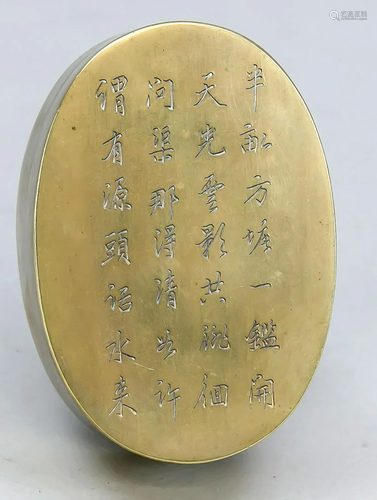 半畝方塘一鑑開
天光雲影共徘徊
問渠那得清如許
謂有源頭活水来